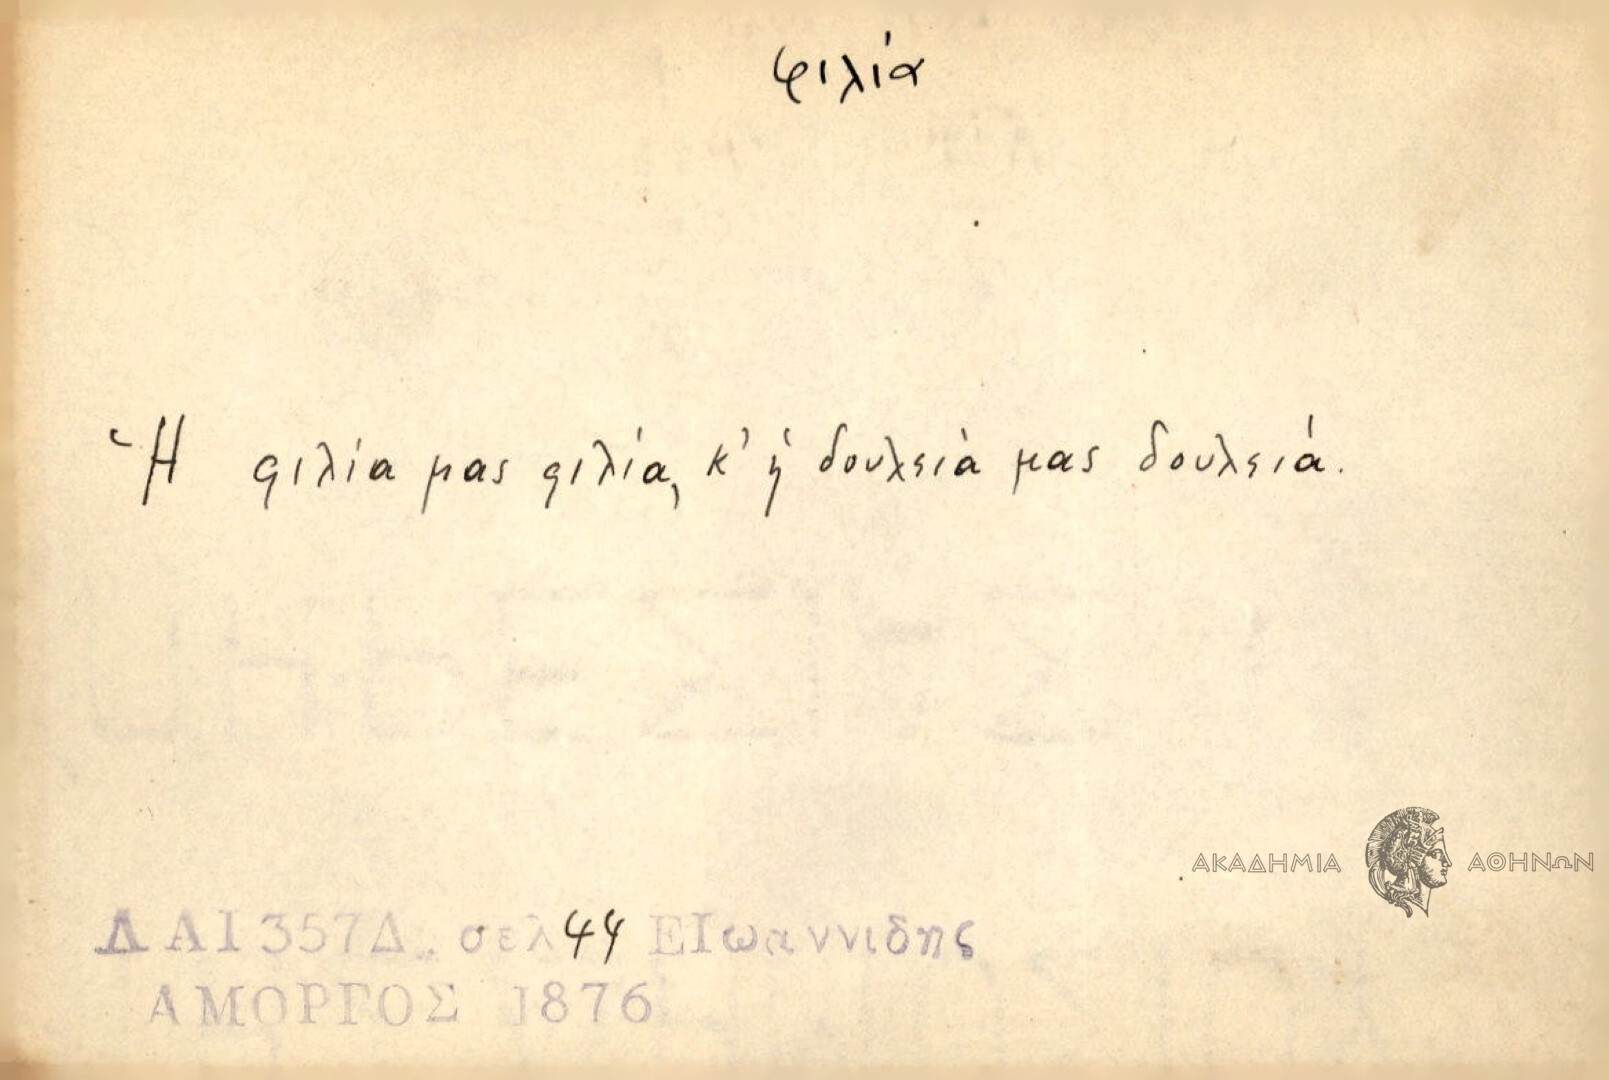 φιλία
Ἡ φιλία μας φιλία, κ' ἡ δουλειὰ μας δουλειά.
ΑΚΑΔΗΜΙΑ ΑΘΗΝΩΝ
ΔΑΙ357Δ. σελ 44 ΕΙωαννιδης
ΑΜΟΡΓΟΣ 1876